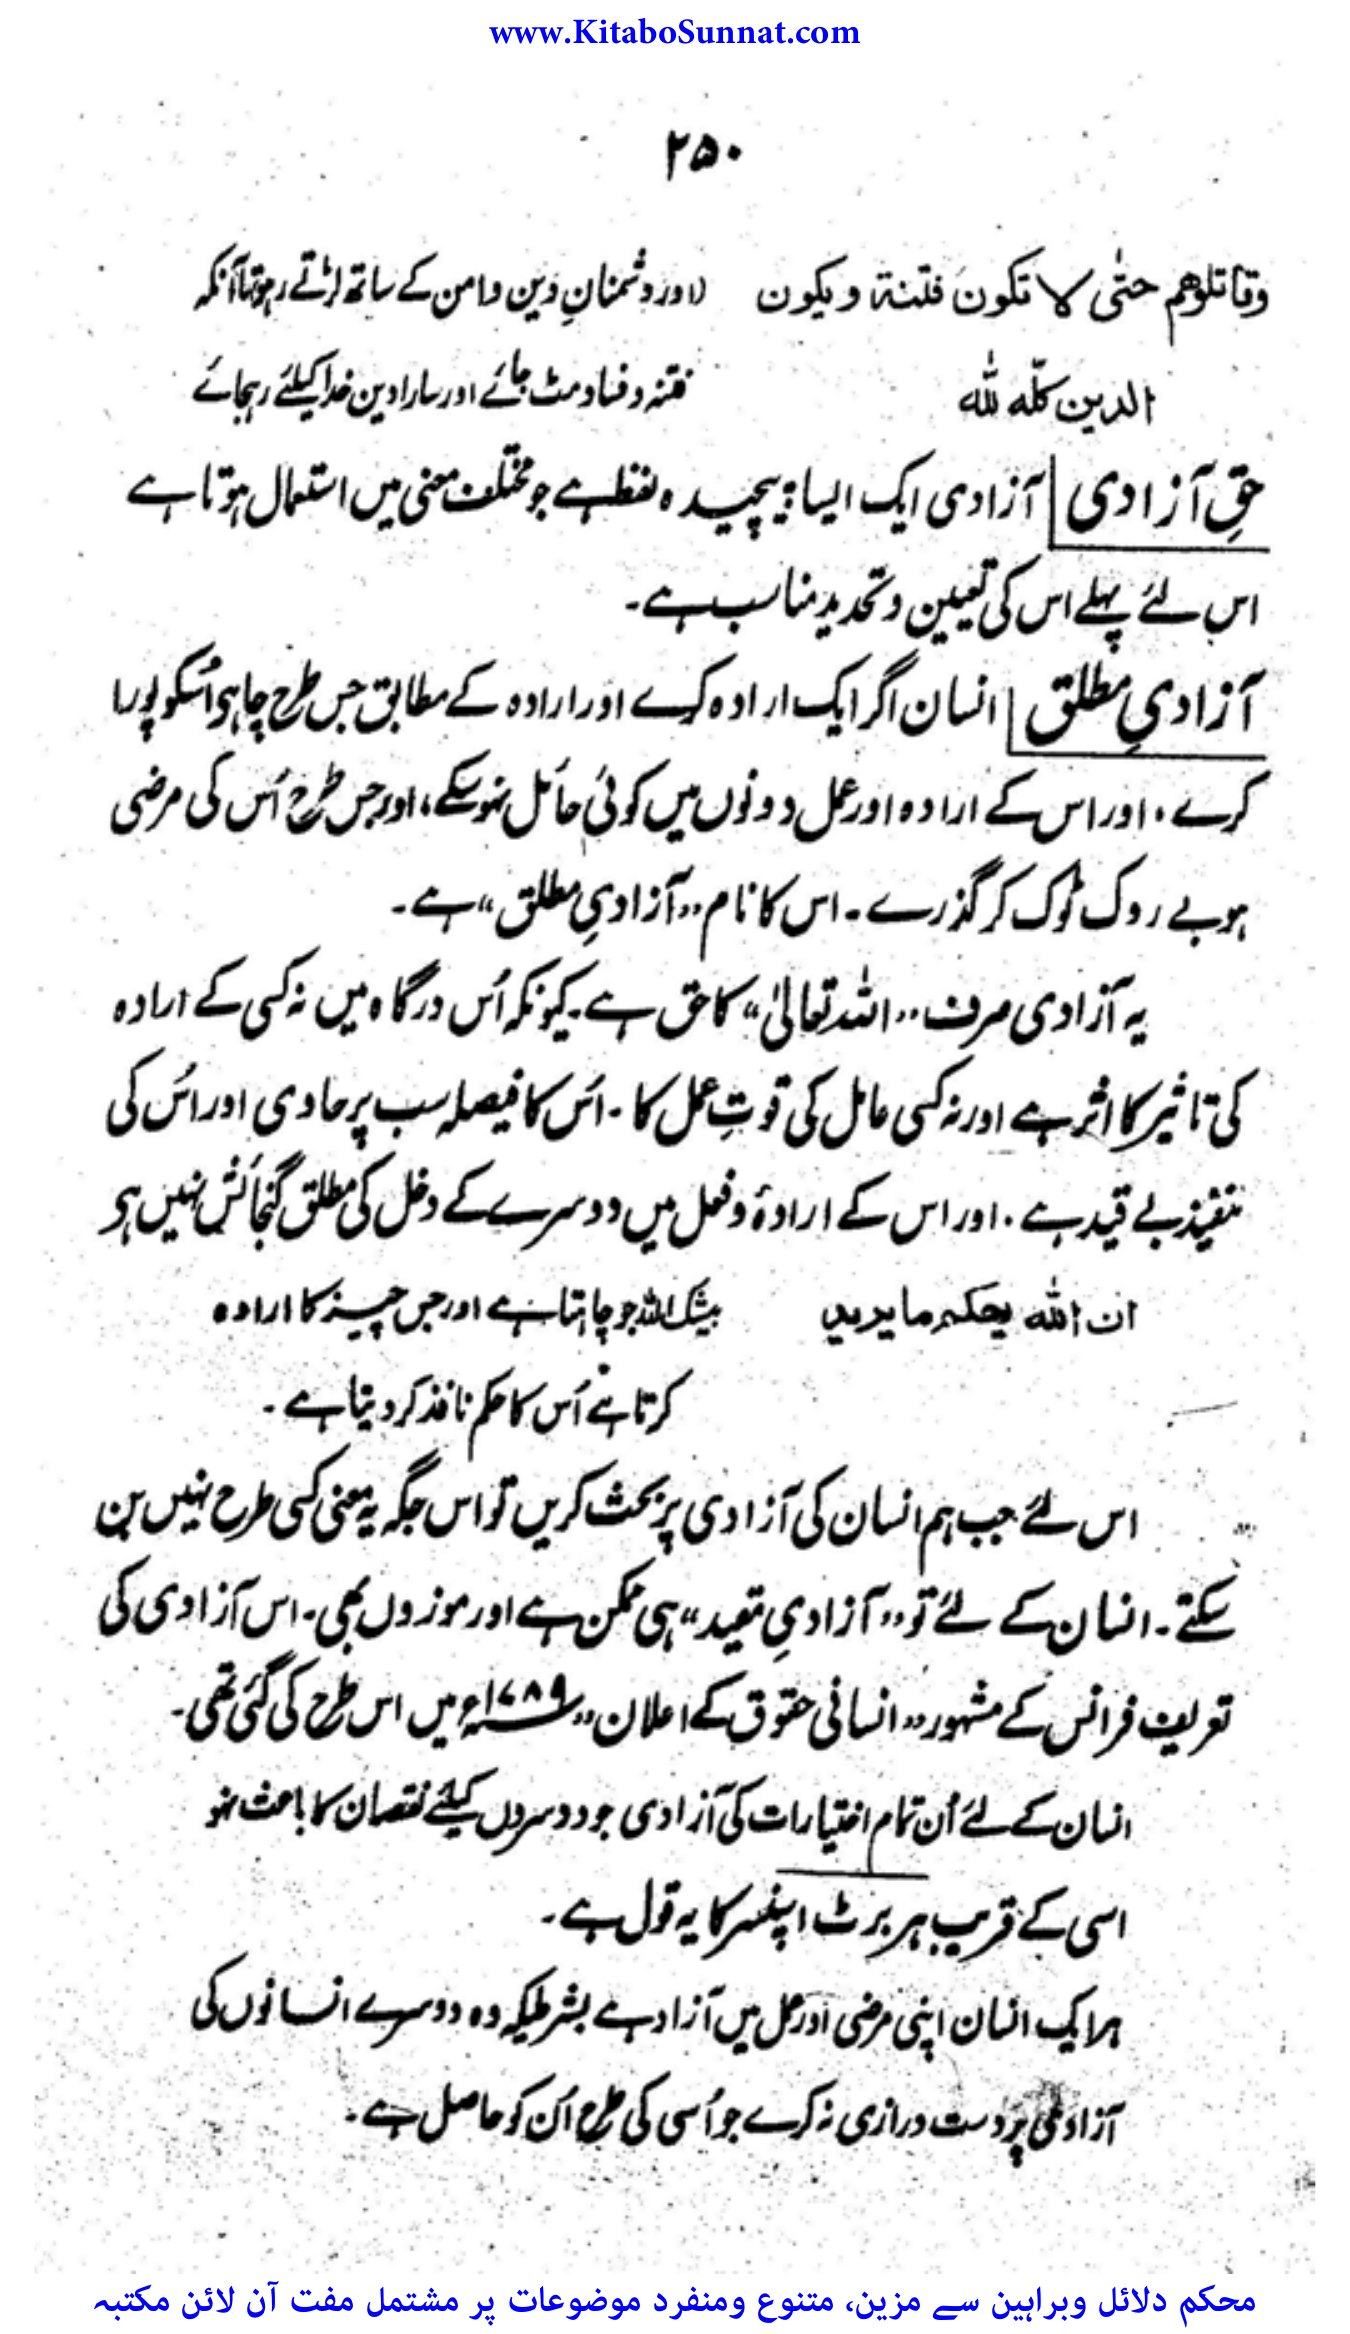 www.KitaboSunnat.com
۲۵۰
وقاتلوھم حتٰی لا تکونَ فتنة ویکون (اور دشمنانِ دین وامن کے ساتھ لڑتے رہو تا آنکہ
الدین کلّه للّٰه فتنہ وفساد مٹ جائے اور سارا دین خدا کیلئے رہجائے
حقِ آزادی آزادی ایک ایسا پیچیدہ لفظ ہے جو مختلف معنی میں استعمال ہوتا ہے
اس لئے پہلے اس کی تعیین وتحدید مناسب ہے۔
آزادیِ مطلق انسان اگر ایک ارادہ کرے اور ارادہ کے مطابق جس طرح چاہو اُسکو پورا
کرے، اور اس کے ارادہ اور عمل دونوں میں کوئی حائل نہو سکے، اور جس طرح اُس کی مرضی
ہو بے روک ٹوک کر گذرے۔ اس کا نام ”آزادیِ مطلق“ ہے۔
یہ آزادی صرف ”اللہ تعالیٰ“ کا حق ہے۔ کیونکہ اُس درگاہ میں نہ کسی کے ارادہ
کی تاثیر کا اثر ہے اور نہ کسی عامل کی قوتِ عمل کا۔ اُس کا فیصلہ سب پر حاوی اور اُس کی
تنفیذ بے قید ہے، اور اس کے ارادۂ وفعل میں دوسرے کے دخل کی مطلق گنجائش نہیں ہو
ان اللّٰه یحکم ما یرید بیشک اللہ جو چاہتا ہے اور جس چیز کا ارادہ
کرتا ہے اُس کا حکم نافذ کر دیتا ہے۔
اس لئے جب ہم انسان کی آزادی پر بحث کریں تو اس جگہ یہ معنی کسی طرح نہیں بن
سکتے۔ انسان کے لئے تو ”آزادیِ مقید“ ہی ممکن ہے اور موزوں بھی۔ اس آزادی کی
تعریف فرانس کے مشہور ”انسانی حقوق کے اعلان“ ۱۷۸۹ء میں اس طرح کی گئی تھی۔
انسان کے لئے اُن تمام اختیارات کی آزادی جو دوسروں کیلئے نقصان کا باعث نہو
اسی کے قریب ہربرٹ اپنسر کا یہ قول ہے۔
ہر ایک انسان اپنی مرضی اور عمل میں آزاد ہے بشرطیکہ وہ دوسرے انسانوں کی
آزادی پر دست درازی نہ کرے جو اُسی کی طرح اُن کو حاصل ہے۔
محکم دلائل وبراہین سے مزین، متنوع ومنفرد موضوعات پر مشتمل مفت آن لائن مکتبہ